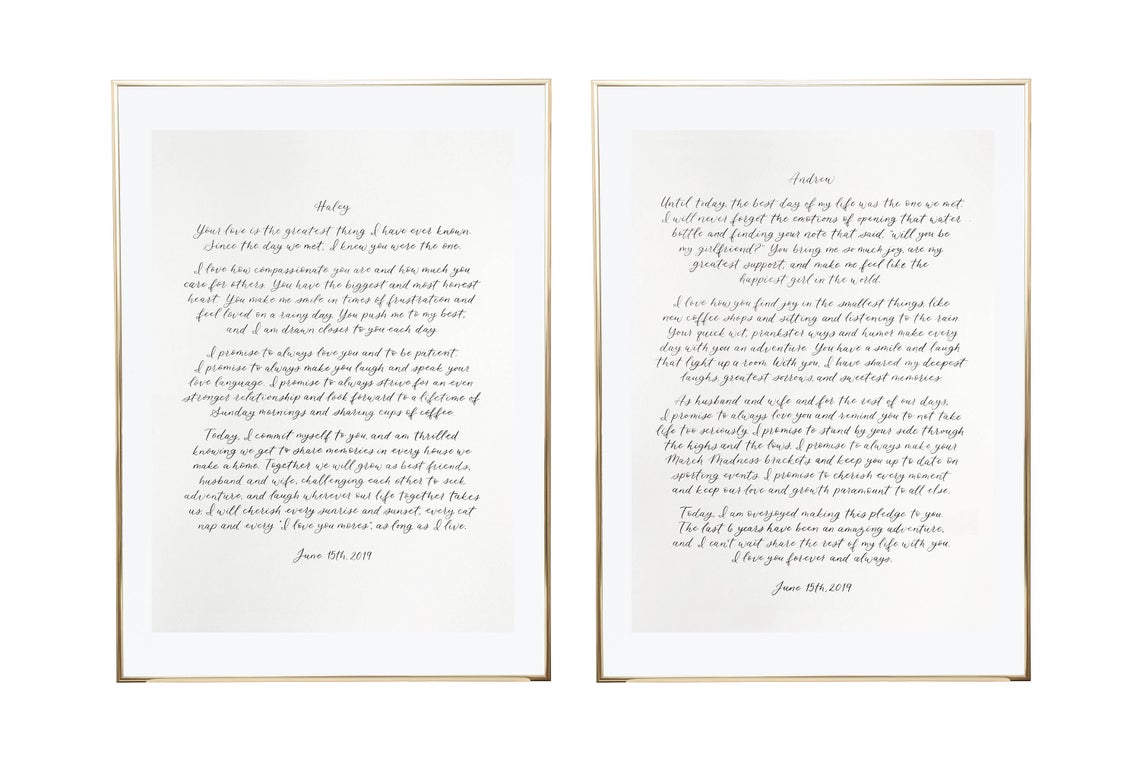 Haley
Your love is the greatest thing I have ever known.
Since the day we met, I knew you were the one.
I love how compassionate you are and how much you
care for others. You have the biggest and most honest
heart. You make me smile in times of frustration and
feel loved on a rainy day. You push me to my best,
and I am drawn closer to you each day.
I promise to always love you and to be patient.
I promise to always make you laugh and speak your
love language. I promise to always strive for an even
stronger relationship and look forward to a lifetime of
Sunday mornings and sharing cups of coffee.
Today, I commit myself to you, and am thrilled
knowing we get to share memories in every house we
make a home. Together we will grow as best friends,
husband and wife, challenging each other to seek
adventure, and laugh wherever our life together takes
us. I will cherish every sunrise and sunset, every cat
nap and every "I love you mores", as long as I live.
June 15th, 2019
Andrew
Until today, the best day of my life was the one we met.
I will never forget the emotions of opening that water
bottle and finding your note that said, "will you be
my girlfriend?" You bring me so much joy, are my
greatest support, and make me feel like the
happiest girl in the world.
I love how you find joy in the smallest things, like
new coffee shops and sitting and listening to the rain.
Your quick wit, prankster ways and humor make every
day with you an adventure. You have a smile and laugh
that light up a room. With you, I have shared my deepest
laughs, greatest sorrows, and sweetest memories.
As husband and wife and for the rest of our days,
I promise to always love you and remind you to not take
life too seriously. I promise to stand by your side through
the highs and the lows. I promise to always make your
March Madness brackets and keep you up to date on
sporting events. I promise to cherish every moment
and keep our love and growth paramount to all else.
Today, I am overjoyed making this pledge to you.
The last 6 years have been an amazing adventure,
and I can't wait share the rest of my life with you.
I love you forever and always.
June 15th, 2019